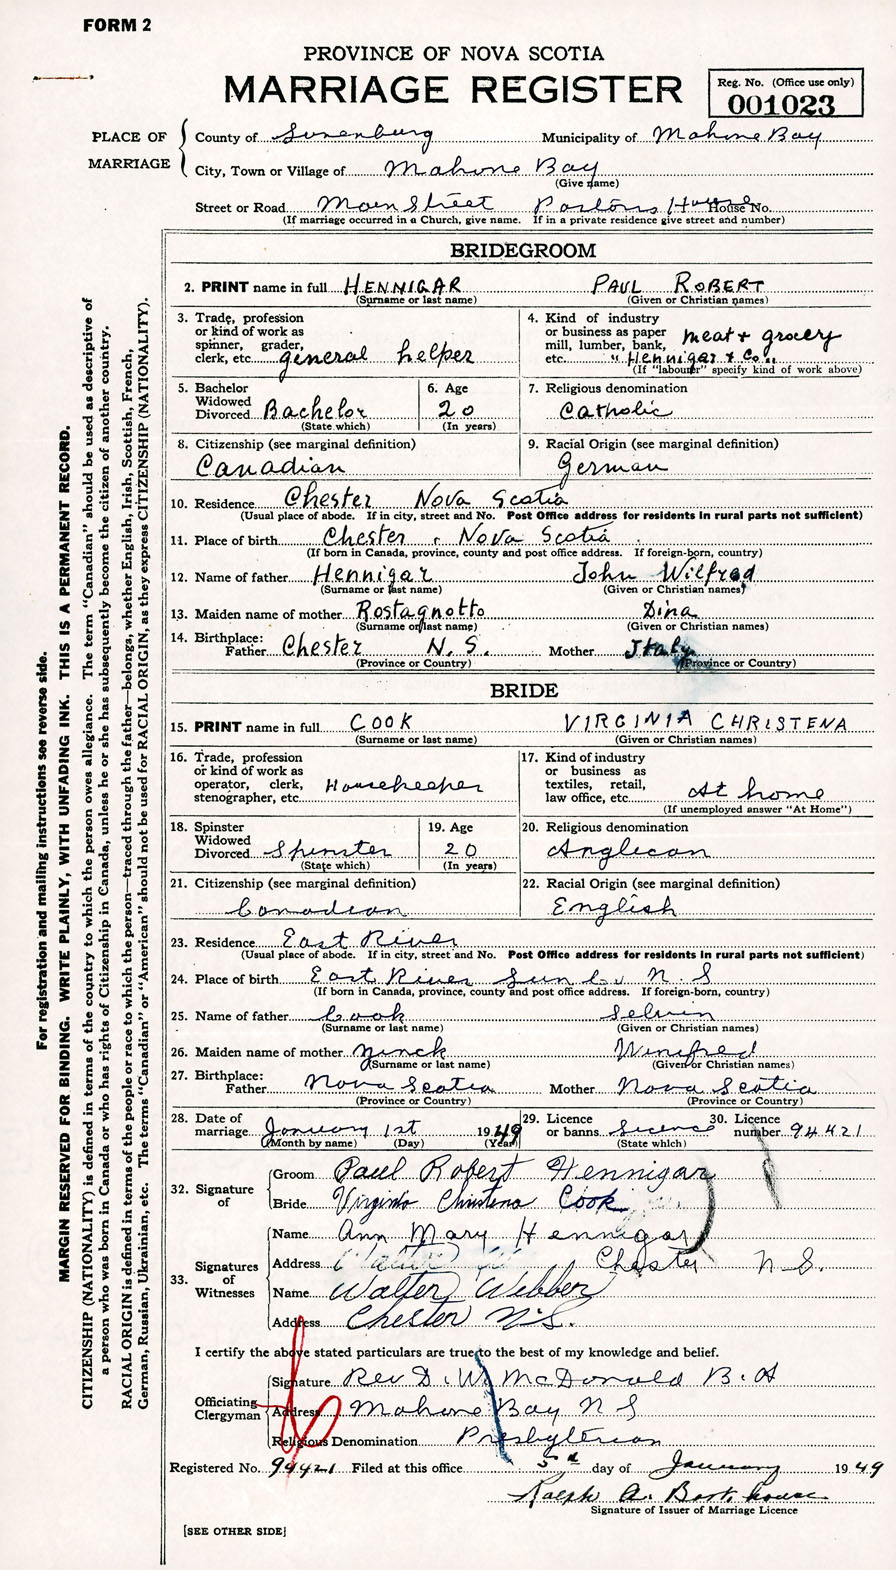 FORM 2
PROVINCE OF NOVA SCOTIA
MARRIAGE REGISTER
Reg. No. (Office use only)
001023
PLACE OF MARRIAGE
County of Lunenburg Municipality of Mahone Bay
City, Town or Village of Mahone Bay
(Give name)
Street or Road Main Street Pastors House House No.
(If marriage occurred in a Church, give name. If in a private residence give street and number)
BRIDEGROOM
2. PRINT name in full HENNIGAR PAUL ROBERT
(Surname or last name) (Given or Christian names)
3. Trade, profession
or kind of work as
spinner, grader,
clerk, etc. general helper
4. Kind of industry
or business as paper
mill, lumber, bank,
etc. meat + grocery
"Hennigar + Co."
(If "labourer" specify kind of work above)
5. Bachelor
Widowed
Divorced Bachelor
(State which)
6. Age
20
(In years)
7. Religious denomination
Catholic
8. Citizenship (see marginal definition)
Canadian
9. Racial Origin (see marginal definition)
German
10. Residence Chester Nova Scotia
(Usual place of abode. If in city, street and No. Post Office address for residents in rural parts not sufficient)
11. Place of birth Chester, Nova Scotia
(If born in Canada, province, county and post office address. If foreign-born, country)
12. Name of father Hennigar John Wilfred
(Surname or last name) (Given or Christian names)
13. Maiden name of mother Rostagnotto Dina
(Surname or last name) (Given or Christian names)
14. Birthplace:
Father Chester N.S. Mother Italy
(Province or Country) (Province or Country)
BRIDE
15. PRINT name in full COOK VIRGINIA CHRISTENA
(Surname or last name) (Given or Christian names)
16. Trade, profession
or kind of work as
operator, clerk,
stenographer, etc. Housekeeper
17. Kind of industry
or business as
textiles, retail,
law office, etc. At home
(If unemployed answer "At Home")
18. Spinster
Widowed
Divorced Spinster
(State which)
19. Age
20
(In years)
20. Religious denomination
Anglican
21. Citizenship (see marginal definition)
Canadian
22. Racial Origin (see marginal definition)
English
23. Residence East River
(Usual place of abode. If in city, street and No. Post Office address for residents in rural parts not sufficient)
24. Place of birth East River Lun Co. N.S
(If born in Canada, province, county and post office address. If foreign-born, country)
25. Name of father Cook Selvin
(Surname or last name) (Given or Christian names)
26. Maiden name of mother Zinck Winifred
(Surname or last name) (Given or Christian names)
27. Birthplace:
Father Nova Scotia Mother Nova Scotia
(Province or Country) (Province or Country)
28. Date of
marriage January 1st 1949
(Month by name) (Day) (Year)
29. Licence
or banns Licence
(State which)
30. Licence
number 94421
32. Signature of
Groom Paul Robert Hennigar
Bride Virginia Christena Cook
33. Signatures of Witnesses
Name Ann Mary Hennigar
Address Chester N.S.
Name Walter Webber
Address Chester N.S.
I certify the above stated particulars are true to the best of my knowledge and belief.
Officiating Clergyman
Signature Rev D. W. McDonald B.A
Address Mahone Bay N S
Religious Denomination Presbyterian
Registered No. 94421 Filed at this office 5th day of January 1949
Ralph A.
Signature of Issuer of Marriage Licence
[SEE OTHER SIDE]
For registration and mailing instructions see reverse side.
MARGIN RESERVED FOR BINDING. WRITE PLAINLY, WITH UNFADING INK. THIS IS A PERMANENT RECORD.
CITIZENSHIP (NATIONALITY) is defined in terms of the country to which the person owes allegiance. The term "Canadian" should be used as descriptive of
a person who was born in Canada or who has rights of Citizenship in Canada, unless he or she has subsequently become the citizen of another country.
RACIAL ORIGIN is defined in terms of the people or race to which the person—traced through the father—belongs, whether English, Irish, Scottish, French,
German, Russian, Ukrainian, etc. The terms "Canadian" or "American" should not be used for RACIAL ORIGIN, as they express CITIZENSHIP (NATIONALITY).